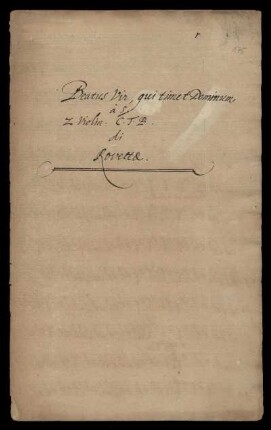 Beatus Vir, qui timet Dominum
à 5
2 Violin. C. T. B.
di
Rovetta.